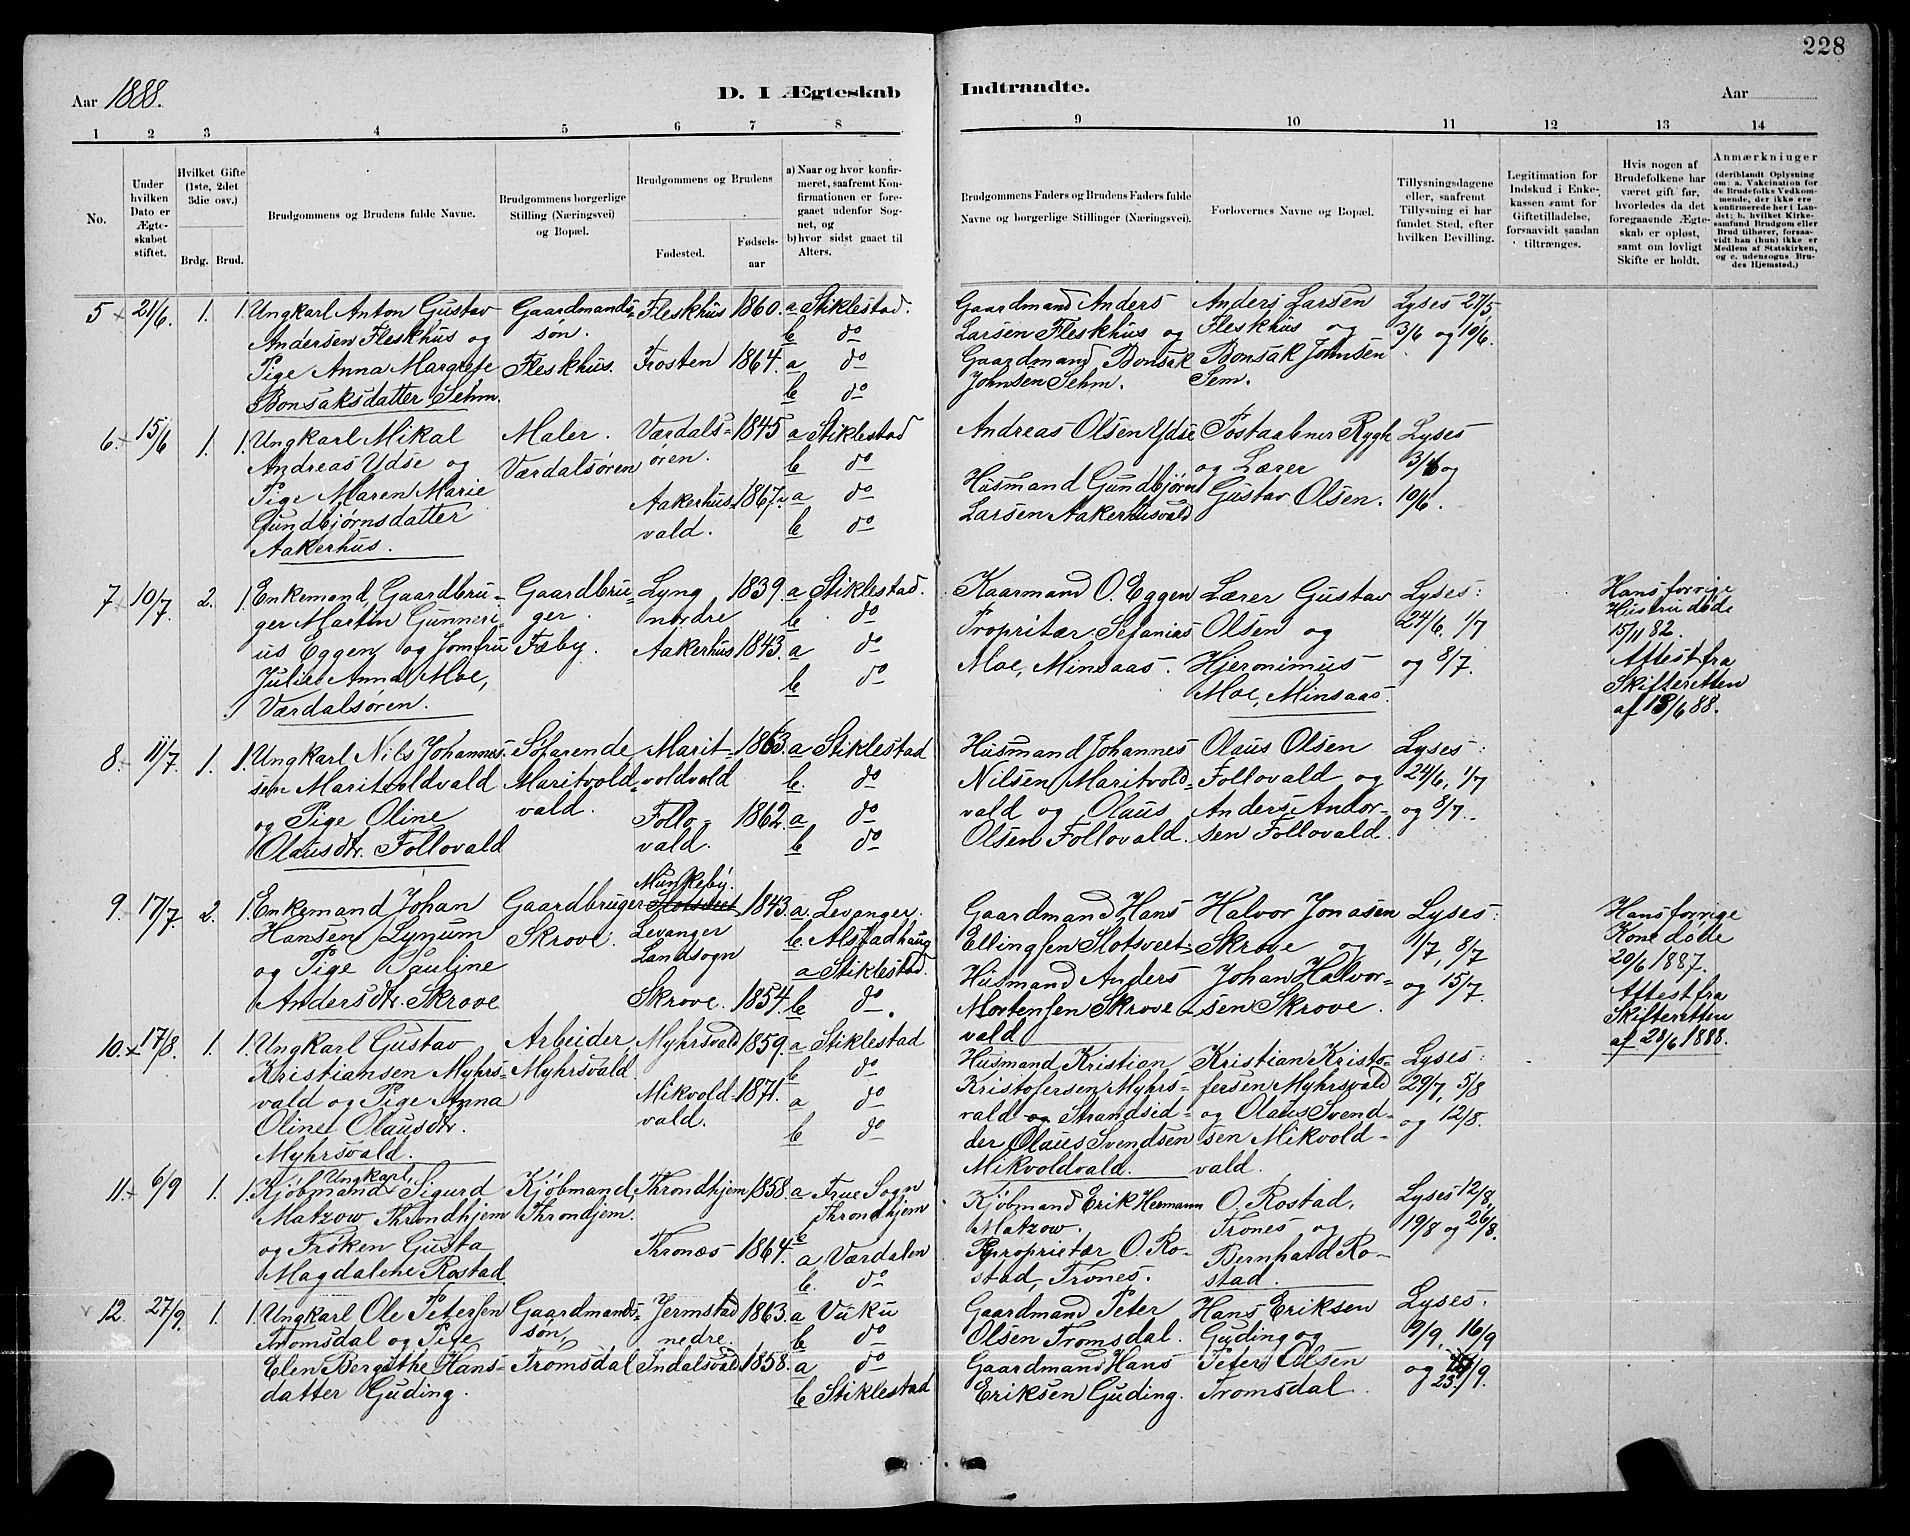 228
Aar 1888.
D. I Ægteskab
Indtraadte.
Aar
1 2 3 4 5 6 7 8 9 10 11 12 13 14
No.
Under hvilken Dato er Ægteskabet stiftet.
Hvilket Gifte (1ste, 2det 3die osv.)
Brdg. Brud.
Brudgommens og Brudens fulde Navne.
Brudgommens borgerlige Stilling (Næringsvei) og Bopæl.
Brudgommens og Brudens
Fødested.
Fødselsaar
a) Naar og hvor konfirmeret, saafremt Konfirmationen er foregaaet udenfor Sognet, og
b) hvor sidst gaaet til Alters.
Brudgommens Faders og Brudens Faders fulde Navne og borgerlige Stillinger (Næringsvei).
Forlovernes Navne og Bopæl.
Tillysningsdagene eller, saafremt Tillysning ei har fundet Sted, efter hvilken Bevilling.
Legitimation for Indskud i Enkekassen samt for Giftetilladelse, forsaavidt saadan tiltrænges.
Hvis nogen af Brudefolkene har været gift før, hvorledes da det foregaaende Ægteskab er opløst, samt om lovligt Skifte er holdt.
Anmærkninger (deriblandt Oplysning om: a. Vakcination for de Brudefolks Vedkommende, der ikke ere konfirmerede her i Landet; b. hvilket Kirkesamfund Brudgom eller Brud tilhører, forsaavidt han (hun) ikke er Medlem af Statskirken, og c. udensogns Brudes Hjemsted.)
5 21/6. 1. 1. Ungkarl Anton Gustav Gaardmands- Fleskhus 1860. a Stiklestad.
Andersen Fleskhus og søn. b do
Pige Anna Margrete Fleskhus. Frosten 1864. a do
Bonsaksdatter Sehm. b do
Gaardmand Anders Anders Larsen Lyses 27/5,
Larsen Fleskhus og Fleskhus og 3/6 og 10/6.
Gaardmand Bonsak Bonsak Johnsen
Johnsen Sehm. Sem.
6. 15/6 1. 1. Ungkarl Mikal Maler. Værdals- 1845 a Stiklestad
Andreas Ydse og Værdalsøren øren. b do
Pige Maren Marie Aakerhus- 1867. a do
Gundbjørnsdatter vald. b do
Aakerhus.
Andreas Olsen Ydse Postaabner Rygh Lyses
og Lærer 3/6 og
Husmand Gundbjørn Gustav Olsen. 10/6.
Larsen Aakerhusvald
7 10/7. 2. 1. Enkemand, Gaardbru- Gaardbru- Lyng 1839. a Stiklestad.
ger Martin Gunneri- ger. nordre b do
us Eggen og Jomfru Fæby. Aakerhus 1843. a do
Julie Anna Moe, b do
Værdalsøren.
Kaarmand O. Eggen Lærer Gustav Lyses: Hans forrige
Propritær Sefanias Olsen og 24/6, 1/7 Hustru døde
Moe, Minsaas. Hjeronimus og 8/7. 15/11 82.
Moe, Minsaas. Attest fra
Skifteretten
af 18/6 88.
8. 11/7. 1. 1. Ungkarl Nils Johannes- Søfarende Marit- 1863. a Stiklestad
sen Maritvoldvald Maritvold- voldvald b. do
og Pige Oline vald. Follo- 1862. a do
Olausdtr. Follovald vald. b do
Husmand Johannes Olaus Olsen Lyses:
Nilsen Maritvold- Follovald og 24/6, 1/7
vald og Olaus Anders Andor- og 8/7.
Olsen Follovald. sen Follovald.
9. 17/7. 2. 1. Enkemand Johan Gaardbruger Munkeby. 1843. a. Levanger.
Hansen Lynum Skrove. Levanger b. Alstadhaug
og Pige Pauline Landsogn a Stiklestad.
Andersdtr. Skrove Skrove. 1854. b do.
Gaardmand Hans Halvor Jonasen Lyses: Hans forrige
Ellingsen Slotsveet Skrove og 1/7, 8/7 Kone døde
Husmand Anders Johan Halvor- og 15/7. 20/6 1887.
Mortensen Skrove- sen Skrove. Attest fra
vald Skifteretten
af 28/6 1888.
10. 17/8. 1. 1. Ungkarl Gustav Arbeider Myhrsvald 1859. a Stiklestad
Kristiansen Myhrs- Myhrsvald. b do
vald og Pige Anna Mikvold- 1871. a do
Oline Olausdtr. vald. b do
Myhrsvald.
Husmand Kristian Kristian Kristo- Lyses:
Kristofersen Myhrs- fersen Myhrsvald 29/7, 5/8
vald og Strandsid- og Olaus Svend- og 12/8.
der Olaus Svendsen sen Mikvold-
Mikvoldvald. vald.
11. 6/9 1. 1. Ungkarl, Kjøbmand Sigurd Kjøbmand, Throndhjem 1858. a Frue Sogn
Matzow Throndhjem Throndjem. Throndhjem
og Frøken Gusta Thronæs 1864. a Værdalen
Magdalene Rostad b. do
Kjøbmand Erik Hermann O. Rostad, Lyses 12/8,
Matzow. Trones og 19/8 og 26/8.
Proprietær O. Ro- Bernhard Ro-
stad, Trones. stad.
12. 27/9. 1. 1. Ungkarl Ole Petersen Gaardmands- Jermstad 1863. a Vuku
Tromsdal og Pige søn, nedre. b do
Elen Bergithe Hans- Tromsdal Indalsvald 1858. a do
datter Guding. b Stiklestad
Gaardmand Peter Hans Eriksen Lyses.
Olsen Tromsdal. Guding og 9/9, 16/9
Gaardmand Hans Peter Olsen og 23/9.
Eriksen Guding. Tromsdal.